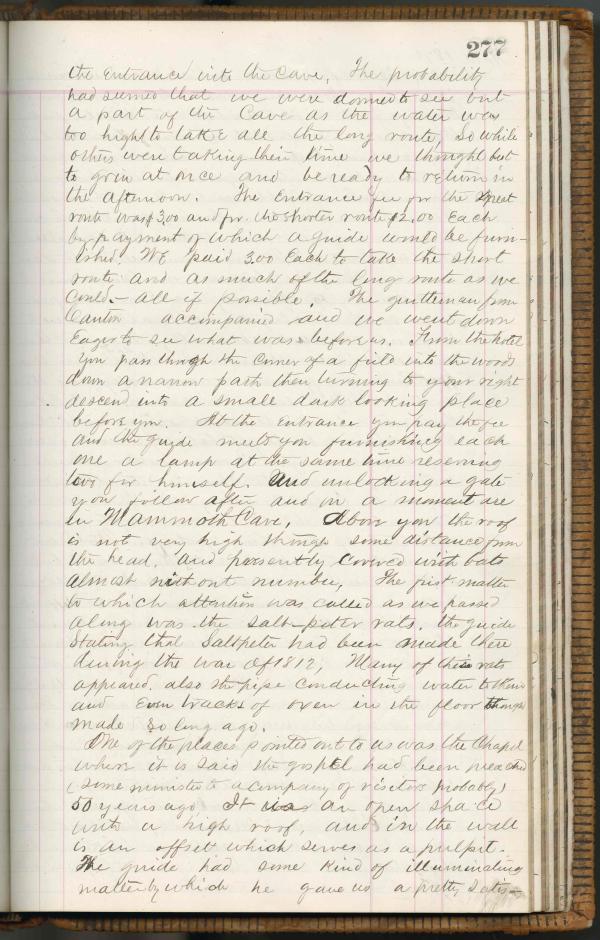 277
the entrance into the Cave. The probability
had seemed that we were doomed to see but
a part of the Cave as the water was
too high to take all the long route, So while
others were taking their time we thought but
to go in at once and be ready to return in
the afternoon. The Entrance fee for the great
route was $3,00 and for the shorter route $2.00 Each
by payment of which a guide would be furn-
ished. We paid 3.00 Each to take the short
route and as much of the long route as we
Could.- all if possible. The gentleman from
Canton accompanied and we went down
Eager to see what was before us. From the hotel
you pass through the corner of a field into the woods
down a narrow path then turning to your right
descend into a small dark looking place
before you. At the Entrance you pay the fee
and the guide meets you furnishing each
one a lamp at the same time reserving
two for himself. And unlocking a gate
you follow after and in a moment are
in Mammoth Cave. Above you the roof
is not very high though some distance from
the head, and presently Covered with bats
almost without number. The first matter
to which attention was called as we passed
along was the Salt-peter vats. the guide
Stating that Saltpeter had been made there
during the war of 1812, Many of these vats
appeared. also the pipe Conducting water to them
and Even tracks of oxen in the floor though
made so long ago.
One of the places pointed out to us was the Chapel
where it is said the gospel had been preached
(some minister to a company of visitors probably)
50 years ago It was an open space
with a high roof, and in the wall
is an offset which serves as a pulpit.
The guide had some kind of illuminating
matter by which he gave us a pretty satis-